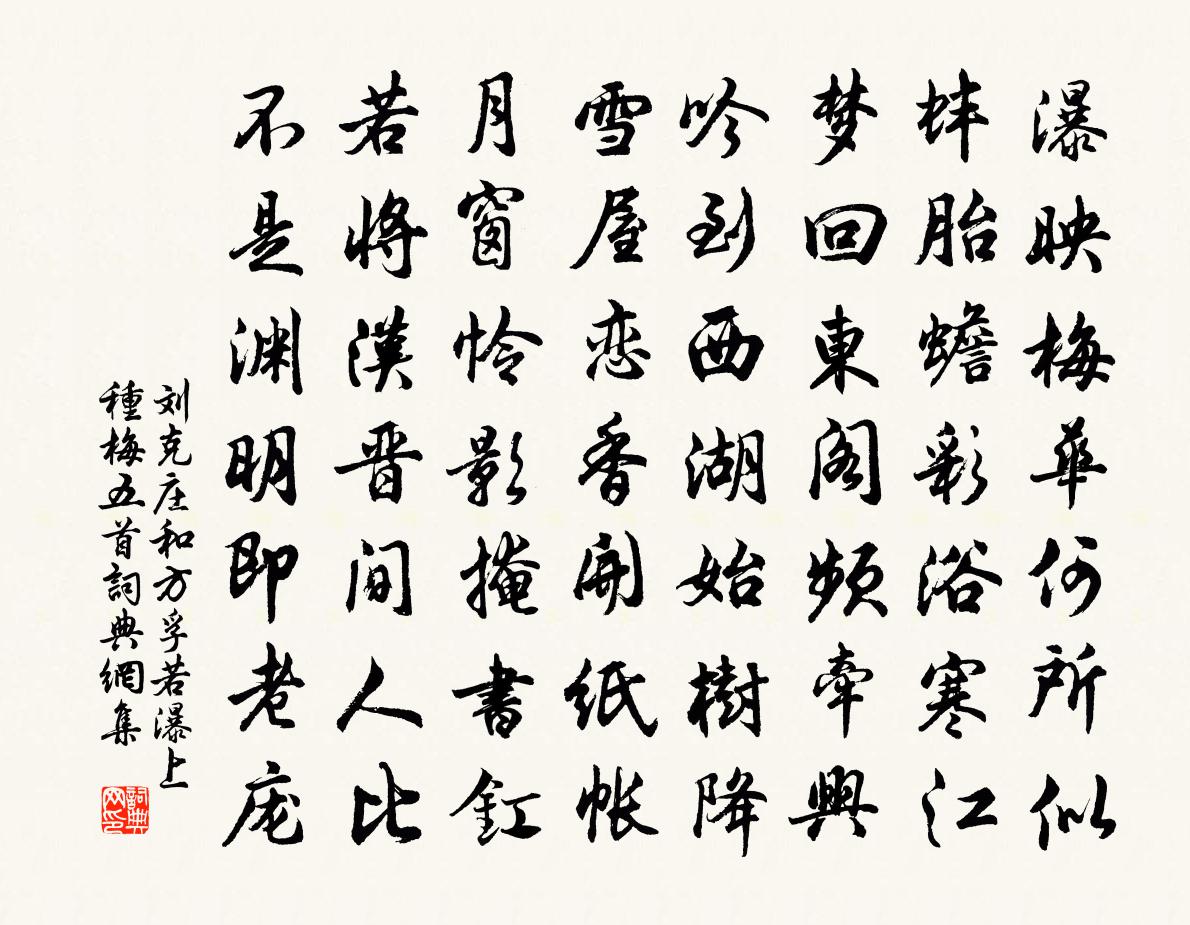 瀑映梅華何所似
蚌胎蟾彩浴寒江
梦回東阁频牵興
吟到西湖始樹降
雪屋恋香開紙帳
月窗怜影掩書釭
若将漢晋間人比
不是渊明即老庞
刘克庄和方孚若瀑上
種梅五首詞典網集
詞典网印